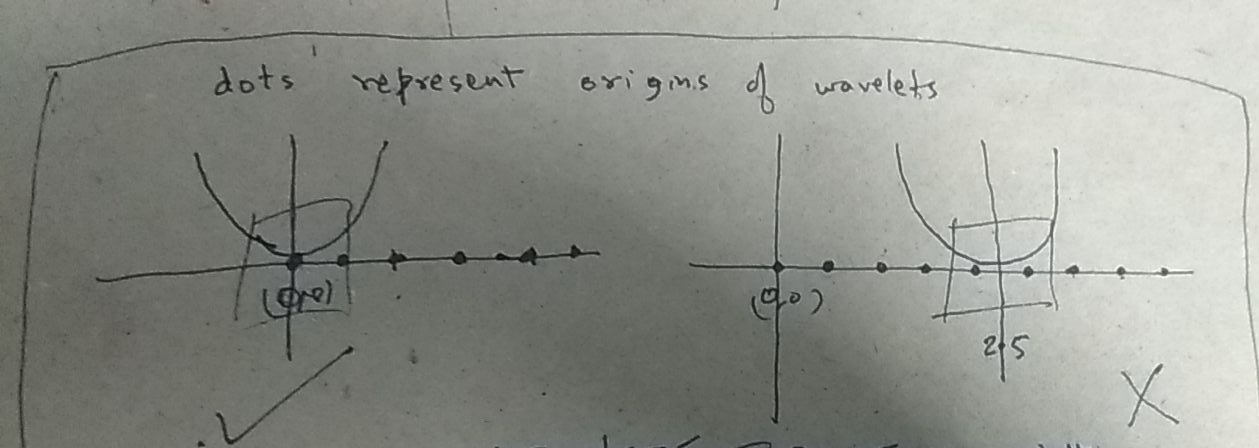 dots represent origins of wavelets
(0,0)
(0,0)
2.5